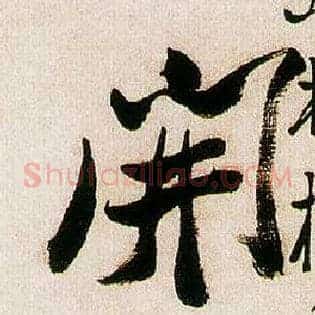 開
Shufaziliao.COM